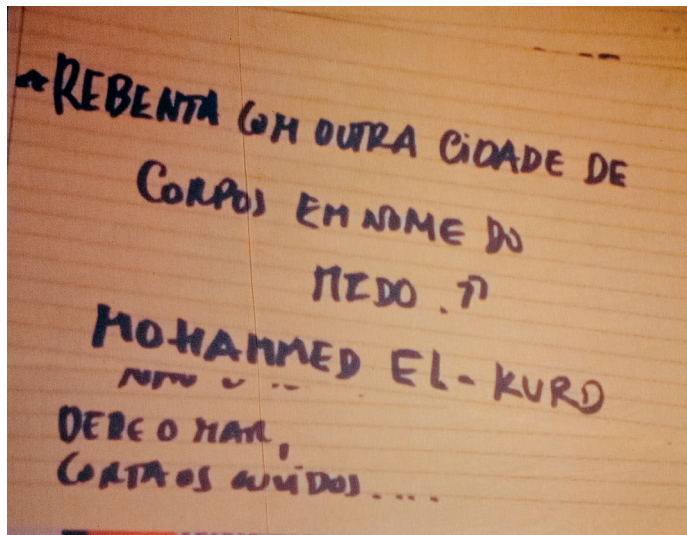 "REBENTA COM OUTRA CIDADE DE
CORPOS EM NOME DO
MEDO."
MOHAMMED EL-KURD
O MAR,
CORTA OS OUVIDOS....